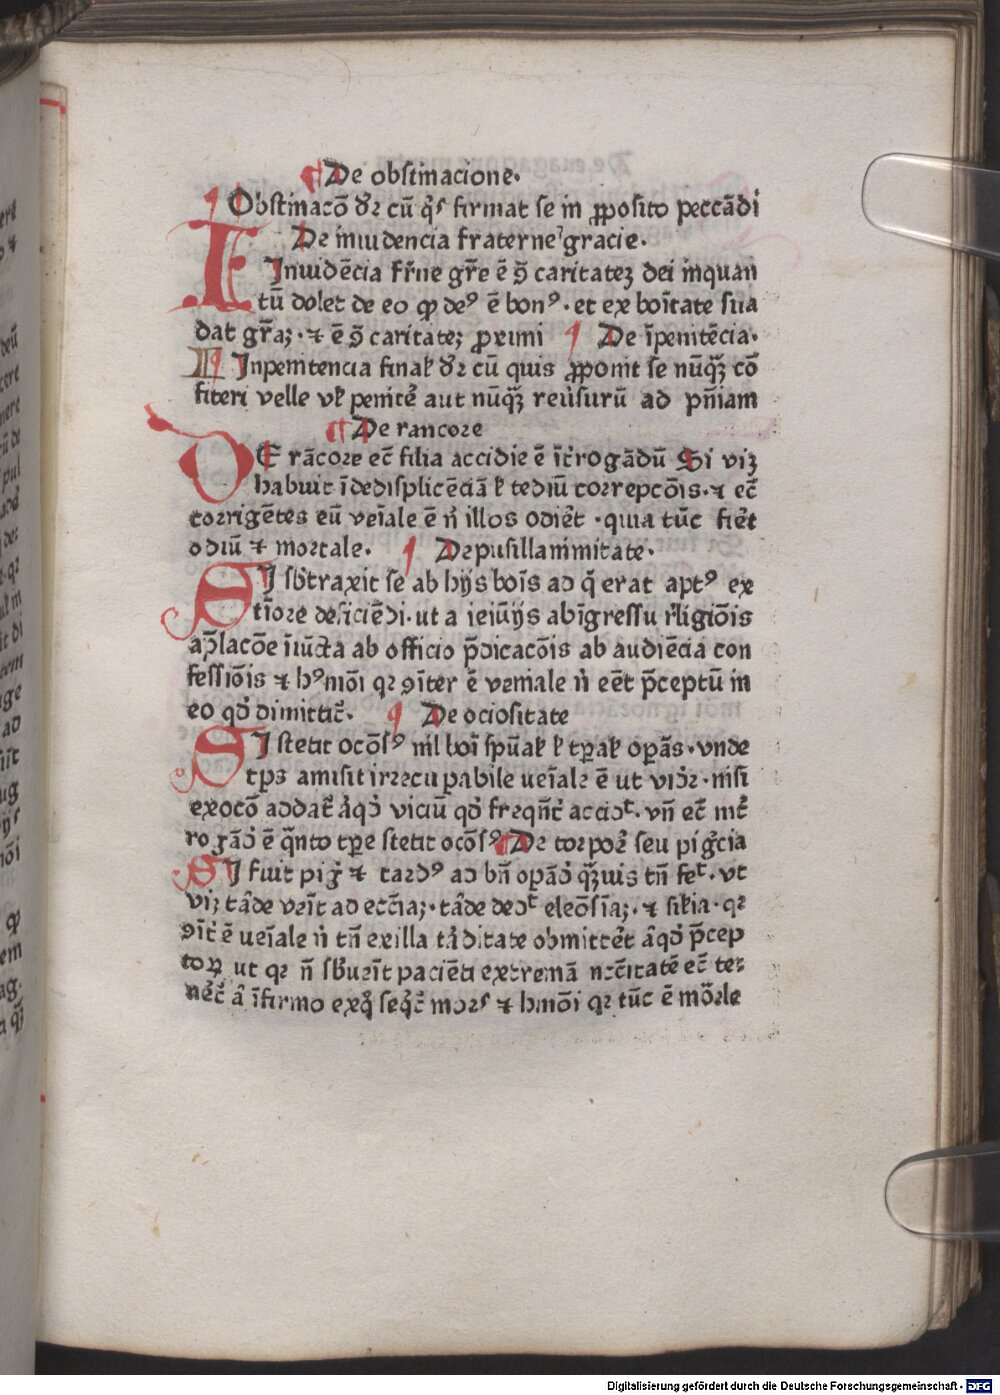 De obstinacione.
Obstinacō dr̄ cū qͥs firmat se in ꝓposito peccādi
De inuidencia fraterne gracie.
Inuidēcia fr̄ne gr̄e ē ꝯ̄ caritatez dei inquan
tū dolet de eo ꝙ deꝰ ē bonꝰ. et ex boītate sua
dat gr̄aꝫ. ⁊ ē ꝯ̄ caritateꝫ proximi De īpenitēcia.
Inpenitencia final' dr̄ cū quis ꝓponit se nūqꝫ̄ cō
fiteri velle vl' penitē aut nūqꝫ̄ reūsurū ad pn̄iam
De rancore
DE rācore ec̄ filia accidie ē īt̄rogādū Si viꝫ
habuit ī dedisplicēciā l' tediū correpcōis. ⁊ ec̄
corrigētes eū veīale ē n̄ illos odiet̄. quia tūc fiet
odiū ⁊ mortale. De pusillanimitate.
SI sb̄traxit se ab hijs boīs ad q̄ erat aptꝰ ex
tīore deficiēdi. ut a ieiūijs ab īgressu rl̄igiōis
a p̄lacōe īiūcta ab officio p̄dicacōis ab audiēcia con
fessiōis ⁊ hꝰmōi qꝛ ꝯīter ē veniale n̄ eēt p̄ceptū in
eo qd̓ dimittit̄. De ociositate
SI stetit ocōsꝰ nīl boī spūal' l' tp̄al' opās. vnde
tp̄s amisit irrecupabile ueīale ē ut vidr̄. nisi
ex ocō addat̄ aͥqd̓ viciū qd̓ freqn̄t̄ accid̄t. vn̄ ec̄ int̄
rogād̓ ē qͣnto tp̄e stetit ocōsꝰ De torpoē seu pigͥcia
SI fuit pig̓ ⁊ tardꝰ ad bn̄ opād̓ qꝫ̄uis tn̄ fet̄. vt
viꝫ tāde veīt ad ecc̄iaꝫ. tāde ded̄t eleōsīaꝫ. ⁊ sīlia. qꝛ
ꝯīt̄ ē ueīale n̄ tn̄ ex illa tāditate obmitt̄et aͥqd̓ p̄cep
toꝝ ut qꝛ n̄ sb̄ueīt paciēti extremā necc̄itatē ec̄ te
net̄ aͥ īfirmo ex qͦ seqt̄ morˢ ⁊ hmōi qꝛ tūc ē mōrle
Digitalisierung gefördert durch die Deutsche Forschungsgemeinschaft - DFG